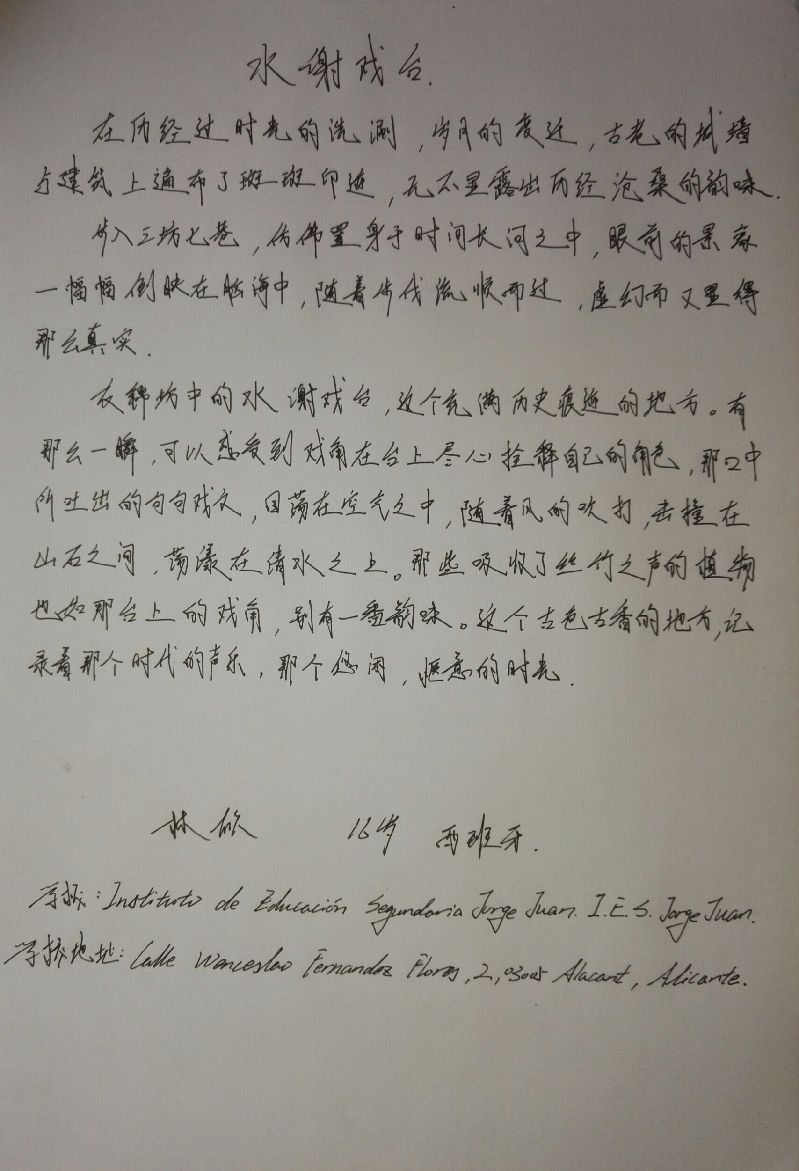 水谢戏台.
在历经过时光的洗涮,岁月的变迁,古老的城墙
与建筑上遍布了斑斑印迹,无不显露出历经沧桑的韵味.
步入三坊七巷,仿佛置身于时间长河之中,眼前的景象
一幅幅倒映在脑海中,随着步伐流顺而过,虚幻而又显得
那么真实.
衣锦坊中的水谢戏台,这个充满历史痕迹的地方。有
那么一瞬,可以感受到戏角在台上尽心拴释自己的角色,那口中
所吐出的句句戏文,回荡在空气之中,随着风的吹打,击撞在
山石之间,荡漾在清水之上。那些吸收了丝竹之声的植物
也如那台上的戏角,别有一番韵味。这个古色古香的地方,记
录着那个时代的声乐,那个悠闲,惬意的时光.
林欣 16岁 西班牙.
学校:Instituto de Educación Segundaria Jorge Juan. I.E.S. Jorge Juan.
学校地址:Calle Wenceslao Fernandez Florez,2,03005 Alacant, Alicante.